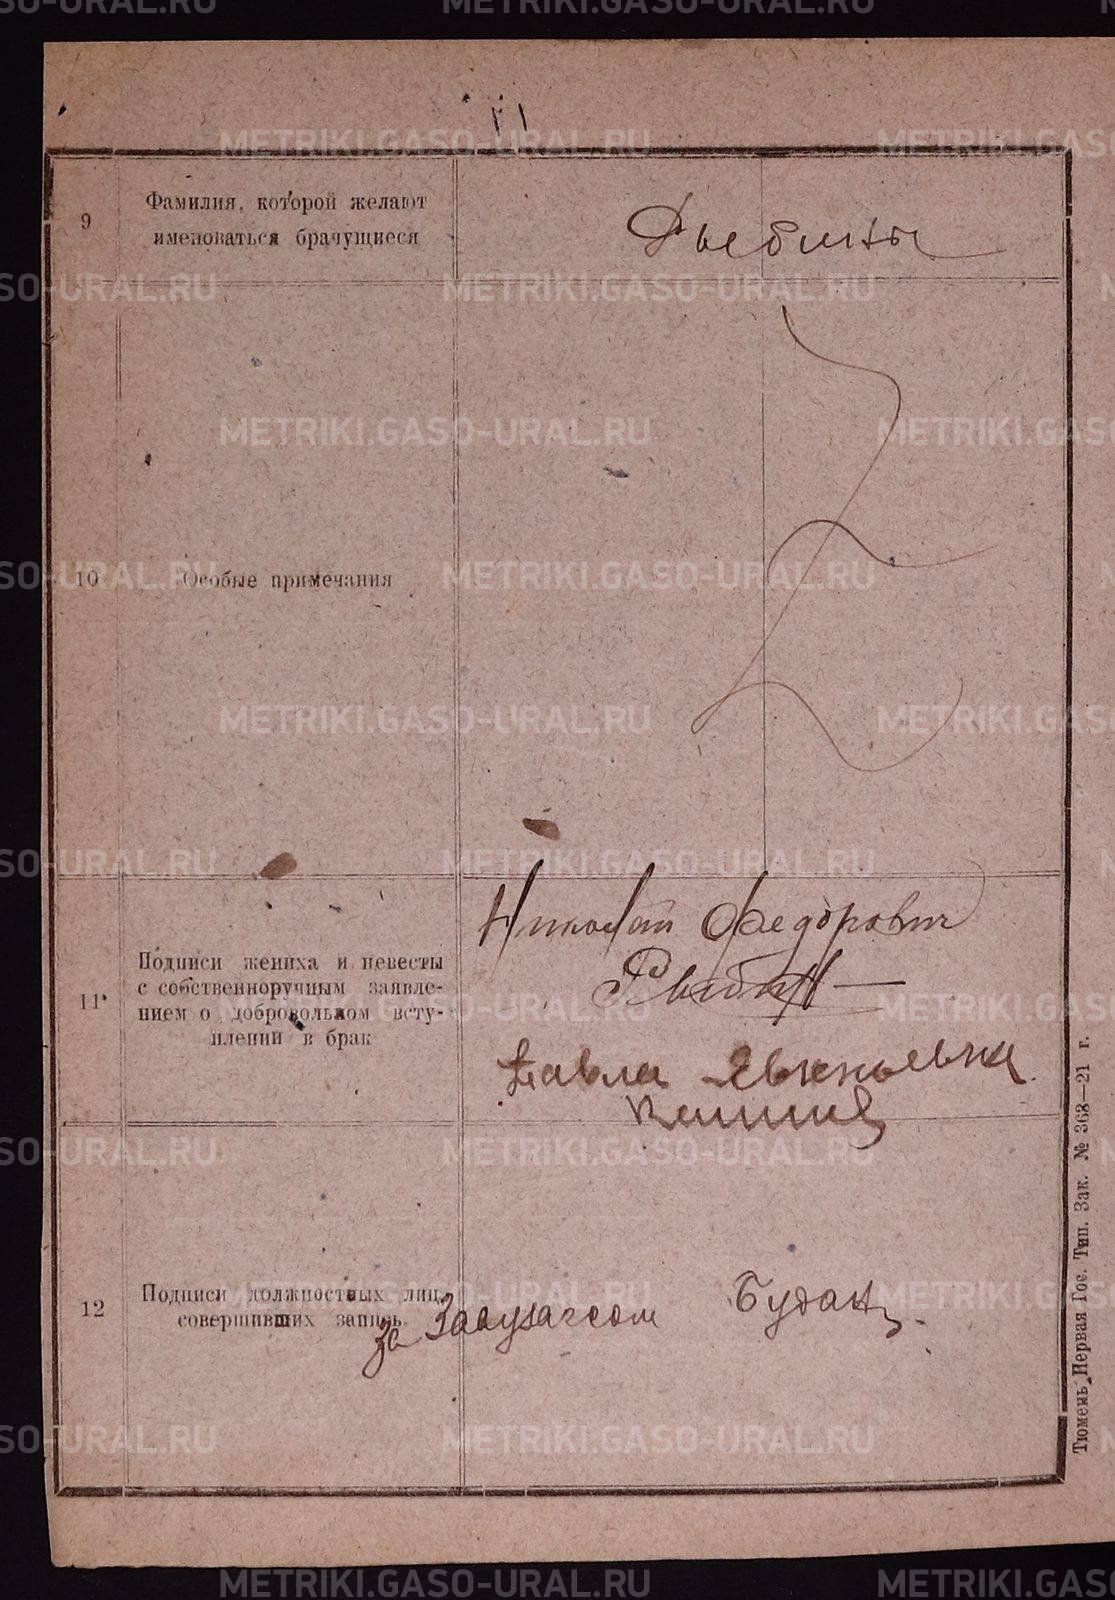 9
Фамилия, которой желают
именоваться брачущиеся
Рыбины
10
Особые примечания
11
Подписи жениха и невесты
с собственноручным заявле-
нием о добровольном всту-
плении в брак
Николай Федорович
Рыбин
Павла
12
Подписи должностных лиц,
совершивших запись.
За
Тюмень, Первая Гос. Тип. Зак. № 368—21 г.
METRIKI.GASO-URAL.RU